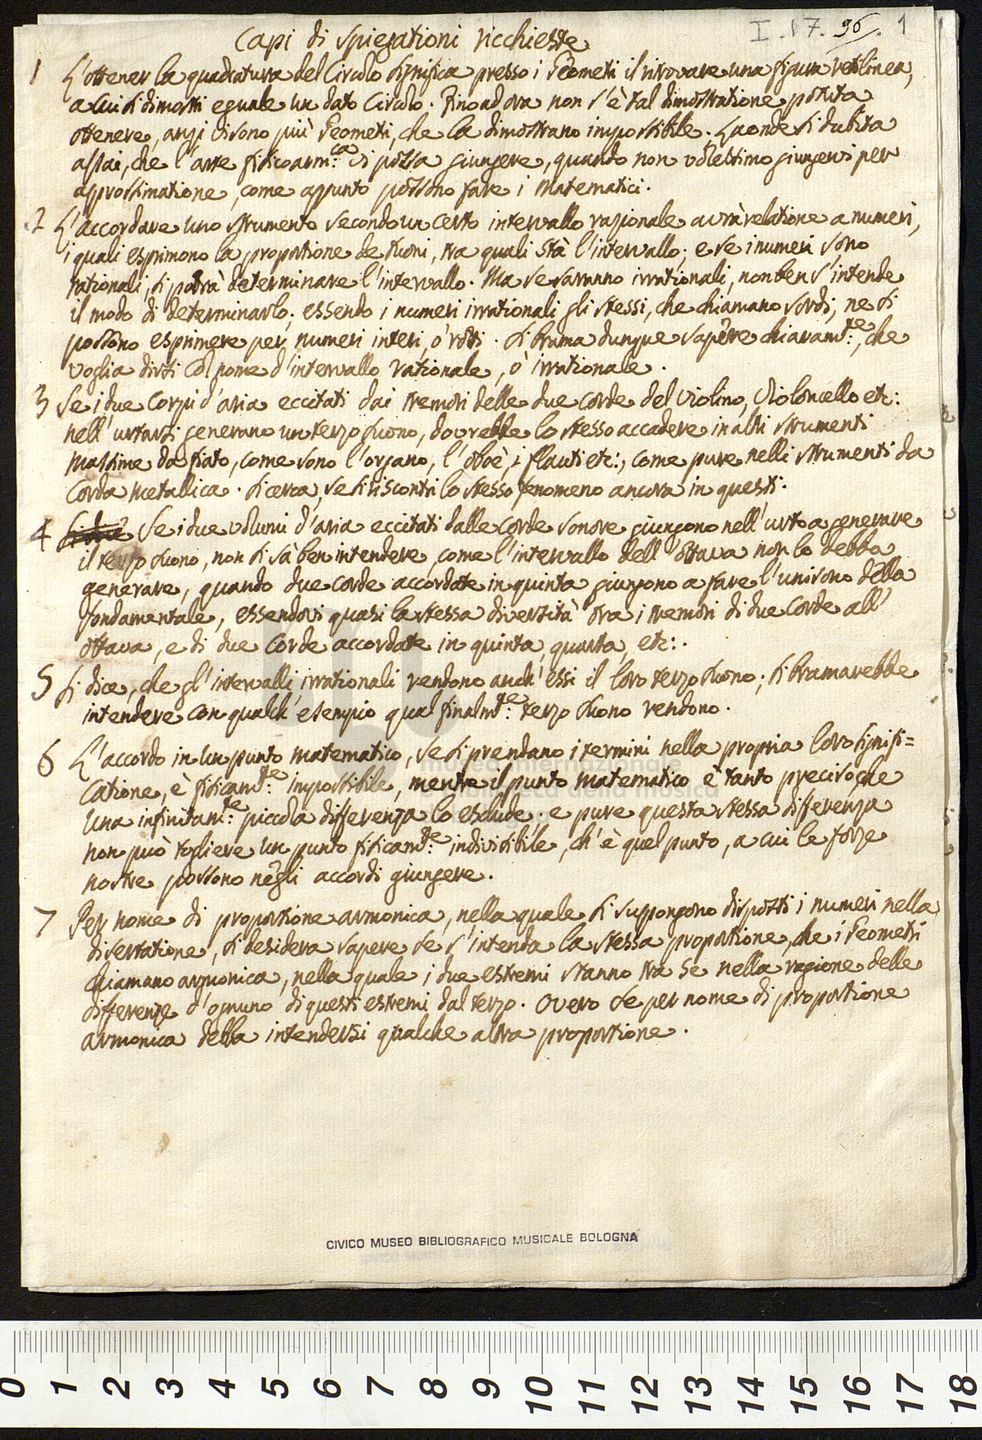 I. 17. 96. 1
Capi di spiegationi ricchieste
1 L'ottener la quadratura del Circolo significa presso i Geometri il ritrovare una figura retilinea,
a cui si dimostri eguale un dato Circolo. Fino ad ora non s'è tal dimostratione potuta
ottenere, anzi vi sono più Geometri, che la dimostrano impossibile. Laonde si dubita
assai, che l'arte fisicoarm:ca vi possa giungere, quando non volessimo giungervi per
approssimatione, come appunto possono fare i Matematici.
2 L'accordare uno strumento secondo un certo intervallo razionale avrà relatione a numeri,
i quali esprimono la proportione de suoni, tra quali stà l'intervallo; e se i numeri sono
rationali, si potrà determinare l'intervallo. Ma se saranno irrationali, non ben s'intende
il modo di determinarlo; essendo i numeri irrationali gli stessi, che chiamano sordi, ne si
possono esprimere per numeri interi, o rotti. Si brama dunque sapere chiaram:te, che
voglia dirsi col nome d'intervallo rationale, o irrationale.
3 Se i due Corpi d'aria eccitati dai tremori delle due corde del Violino, Violoncello etc:
nell'urtarsi generano un terzo suono, dovrebbe lo stesso accadere in altri strumenti
massime da fiato, come sono l'organo, l'oboè, i flauti etc:, come pure nelli strumenti da
corda metallica. Si cerca, se si riscontri lo stesso fenomeno ancora in questi.
4 Se i due volumi d'aria eccitati dalle corde sonore giungono nell'urto a generare
il terzo suono, non si sà ben intendere, come l'intervallo dell'ottava non lo debba
generare, quando due corde accordate in quinta giungono a fare l'unisono della
fondamentale, essendovi quasi la stessa diversità tra i tremori di due corde all'
ottava, e di due Corde accordate in quinta, quarta, etc:.
5 Si dice, che gl'intervalli irrationali rendono anch'essi il loro terzo suono; si bramarebbe
intendere con qualch'esempio qual finalm:te terzo suono rendono.
6 L'accordo in un punto matematico, se si prendano i termini nella propria loro signifi=
catione, è fisicam:te impossibile, mentre il punto matematico è tanto preciso, che
una infinitam:te piccola differenza lo esclude. e pure questa stessa differenza
non può togliere un punto fisicam:te indivisibile, ch'è quel punto, a cui le forze
nostre possono negli accordi giungere.
7 Per nome di proportione armonica, nella quale si suppongono disposti i numeri nella
disertatione, si desidera sapere se s'intenda la stessa proportione, che i Geometri
chiamano armonica, nella quale i due estremi stanno tra se nella ragione delle
differenze d'ognuno di questi estremi dal terzo. Overo se per nome di proportione
armonica debba intendersi qualche altra proportione.
CIVICO MUSEO BIBLIOGRAFICO MUSICALE BOLOGNA
0 1 2 3 4 5 6 7 8 9 10 11 12 13 14 15 16 17 18